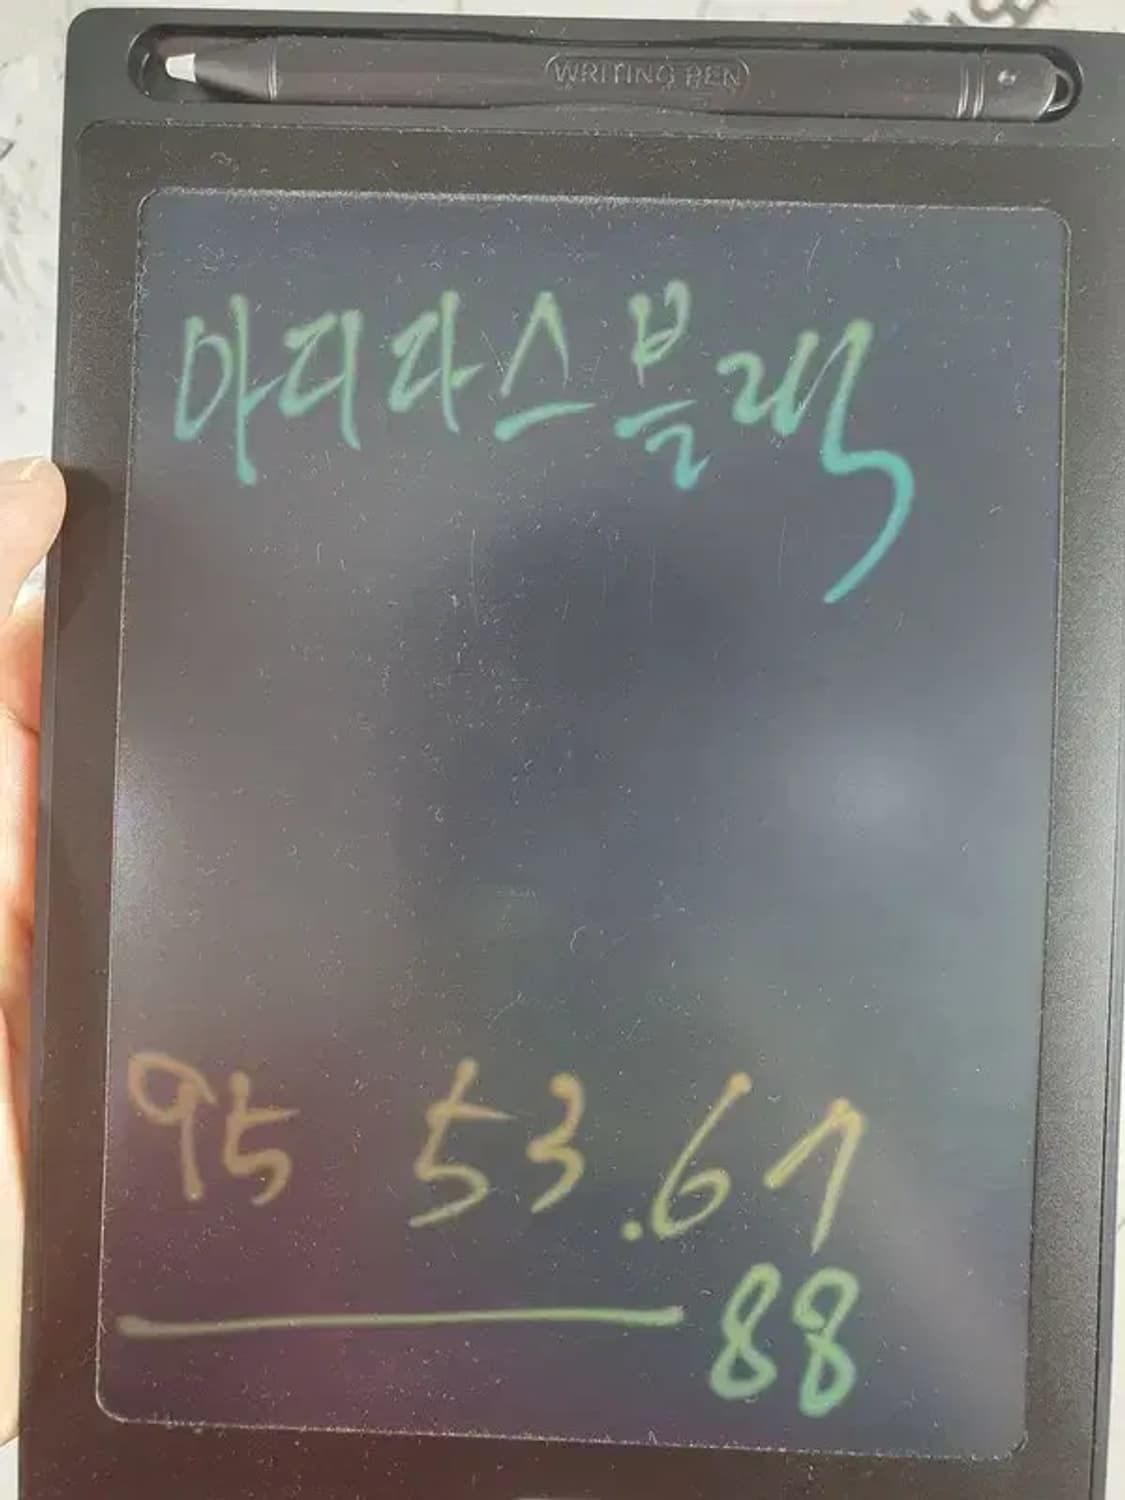 WRITING PEN
아디다스블랙
95 53.67
88